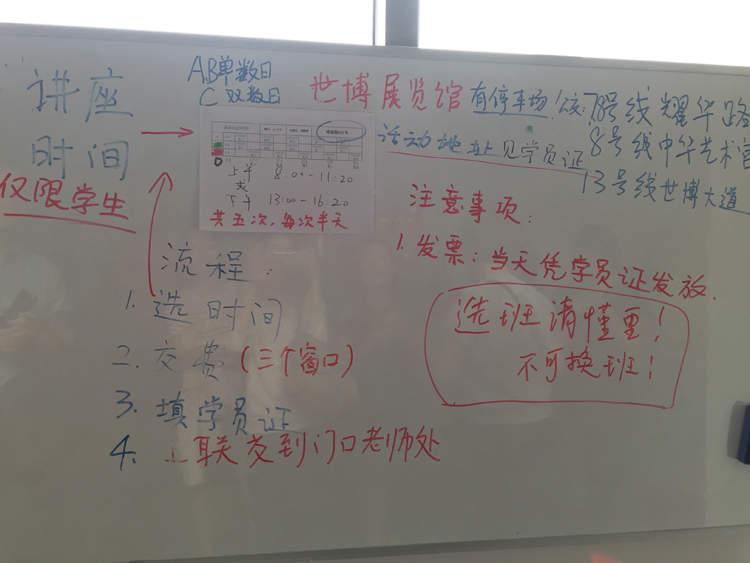 讲座
时间
仅限学生
AB单数日
C 双数日
上午 8:00-11:20
下午 13:00-16:20
共五次,每次半天
世博展览馆 有停车场
7 8号线耀华路
8号线中华艺术宫
13号线世博大道
活动地址见学员证
注意事项:
1. 发票:当天凭学员证发放.
选班请慎重!
不可换班!
流程:
1. 选时间
2. 交费(三个窗口)
3. 填学员证
4. 联交到门口老师处